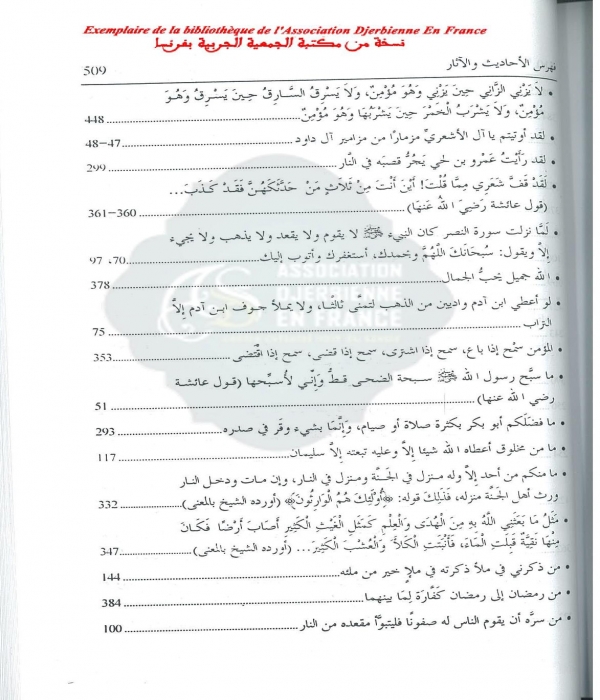 Exemplaire de la bibliothèque de l'Association Djerbienne En France
نسخة من مكتبة الجمعية الجربية بفرنسا
فهرس الأحاديث والآثار
509
• لاَ يَزْنِي الزَّانِي حِينَ يَزْنِي وَهُوَ مُؤْمِنٌ، وَلاَ يَسْرِقُ السَّارِقُ حِينَ يَسْرِقُ وَهُوَ
مُؤْمِنٌ، وَلاَ يَشْرَبُ الْخَمْرَ حِينَ يَشْرَبُهَا وَهُوَ مُؤْمِنٌ 448
• لقد أوتيتم يا آل الأشعريِّ مزمارًا من مزامير آل داود 47-48
• لقد رَأَيْتُ عَمْرو بن لحي يَجُرُّ قصبَه في النار 299
• لَقَدْ قَفَّ شَعَرِي مِمَّا قُلْتَ! أَيْنَ أَنْتَ مِنْ ثَلاَثٍ مَنْ حَدَّثَكَهُنَّ فَقَدْ كَذَبَ...
(قول عائشة رَضِيَ اللهُ عَنهَا) 360-361
• لَمَّا نزلت سورة النصر كان النبيء ﷺ لا يقوم ولا يقعد ولا يذهب ولا يجيء
إلاَّ ويقول: سُبْحَانَكَ اللَّهُمَّ وبحمدك، أستغفرك وأتوب إليك 70، 97
• الله جميل يحبُّ الجمال 378
• لو أعطي ابن آدم واديين من الذهب لتمنَّى ثالثًا، ولا يملأ جوف ابن آدم إلاَّ
التراب 75
• المؤمن سَمْح إذا باع، سمح إذا اشترى، سمح إذا قضى، سمح إذا اقتضى 353
• ما سبَّح رسول الله ﷺ سبحة الضحى قطُّ وَإِنِّي لأُسبِّحها (قول عائشة
رضي الله عنها) 51
• ما فضَلكم أبو بكر بكثرة صلاة أو صيام، وَإِنَّمَا بشيء وقَر في صدره 293
• ما من مخلوق أعطاه الله شيئا إلاَّ وعليه تبعته إلاَّ سليمان 117
• ما منكم من أحد إلاَّ وله منزل في الجَنَّة ومنزل في النار، وإن مات ودخل النار
ورث أهل الجَنَّة منزله، فذلك قوله: ﴿أُوْلَئِكَ هُمُ الْوَارِثُونَ﴾ (أورده الشيخ بالمعنى) 332
• مَثَلُ مَا بَعَثَنِي اللهُ بِهِ مِنَ الْهُدَى وَالْعِلْمِ كَمَثَلِ الْغَيْثِ الْكَثِيرِ أَصَابَ أَرْضًا فَكَانَ
مِنْهَا نَقِيَّةٌ قَبِلَتِ الْمَاءَ، فَأَنْبَتَتِ الْكَلأَ وَالْعُشْبَ الْكَثِيرَ... (أورده الشيخ بالمعنى) 347
• من ذكرني في ملأ ذكرته في ملإ خير من ملئه 144
• من رمضان إلى رمضان كَفَّارَة لِمَا بينهما 384
• من سرَّه أن يقوم الناس له صفونًا فليتبوَّأ مقعده من النار 100
ASSOCIATION
DJERBIENNE
EN FRANCE